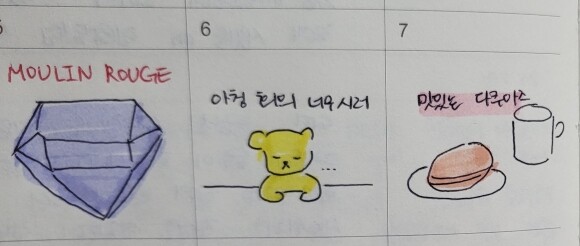 5
6
7
MOULIN ROUGE
아침 회의 너무시러
...
맛있는 다쿠아즈